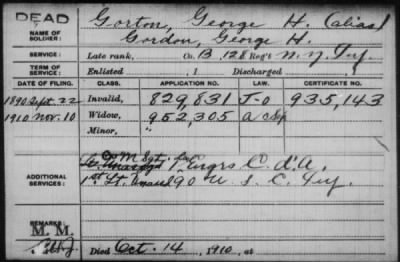 DEAD
Gorton, George H. (alias)
NAME OF SOLDIER:
Gordon, George H.
SERVICE:
Late rank, Co. B, 128 Reg't N.Y. Inf.
TERM OF SERVICE:
Enlisted , 1 Discharged , 1
DATE OF FILING. CLASS. APPLICATION NO. LAW. CERTIFICATE NO.
1890 Sept. 22 Invalid, 829,831 J-O 935,143
1910 Nov. 10 Widow, 952,305
Minor, "
ADDITIONAL SERVICES:
Q M Sgt. Engrs C. d'A.
1st Lt. 90 U.S.C. Inf.
REMARKS:
M. M.
Died Oct. 14, 1910, at